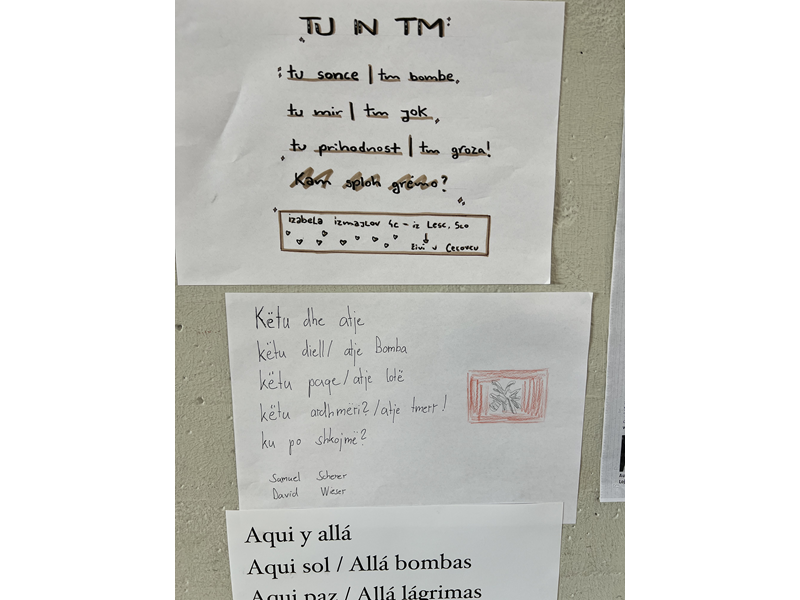 TU IN TM
tu sonce | tm bombe,
tu mir | tm jok,
tu prihodnost | tm groza!
Kam sploh gremo?
izabela izmajlov 4c - iz Lesc, SLO
živi v Celovcu
Këtu dhe atje
këtu diell / atje Bomba
këtu paqe / atje lotë
këtu ardhmëri? / atje tmerr!
ku po shkojmë?
Samuel Scherer
David Wieser
Aqui y allá
Aqui sol / Allá bombas
Aqui paz / Allá lágrimas